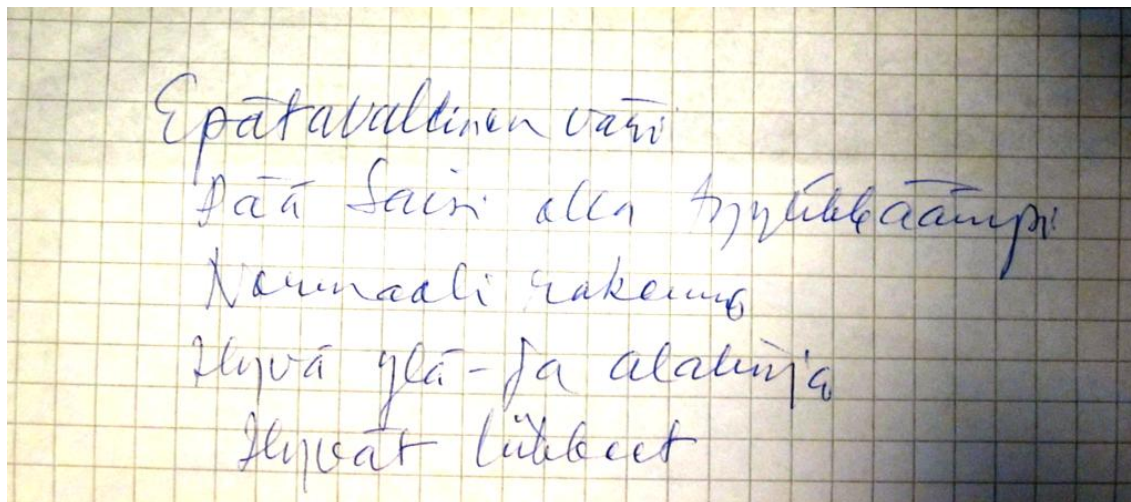 Epätavallinen väri
Pää saisi olla tyylikkäämpi
Normaali rakenne
Hyvä ylä- ja alalinja
Hyvät liikkeet